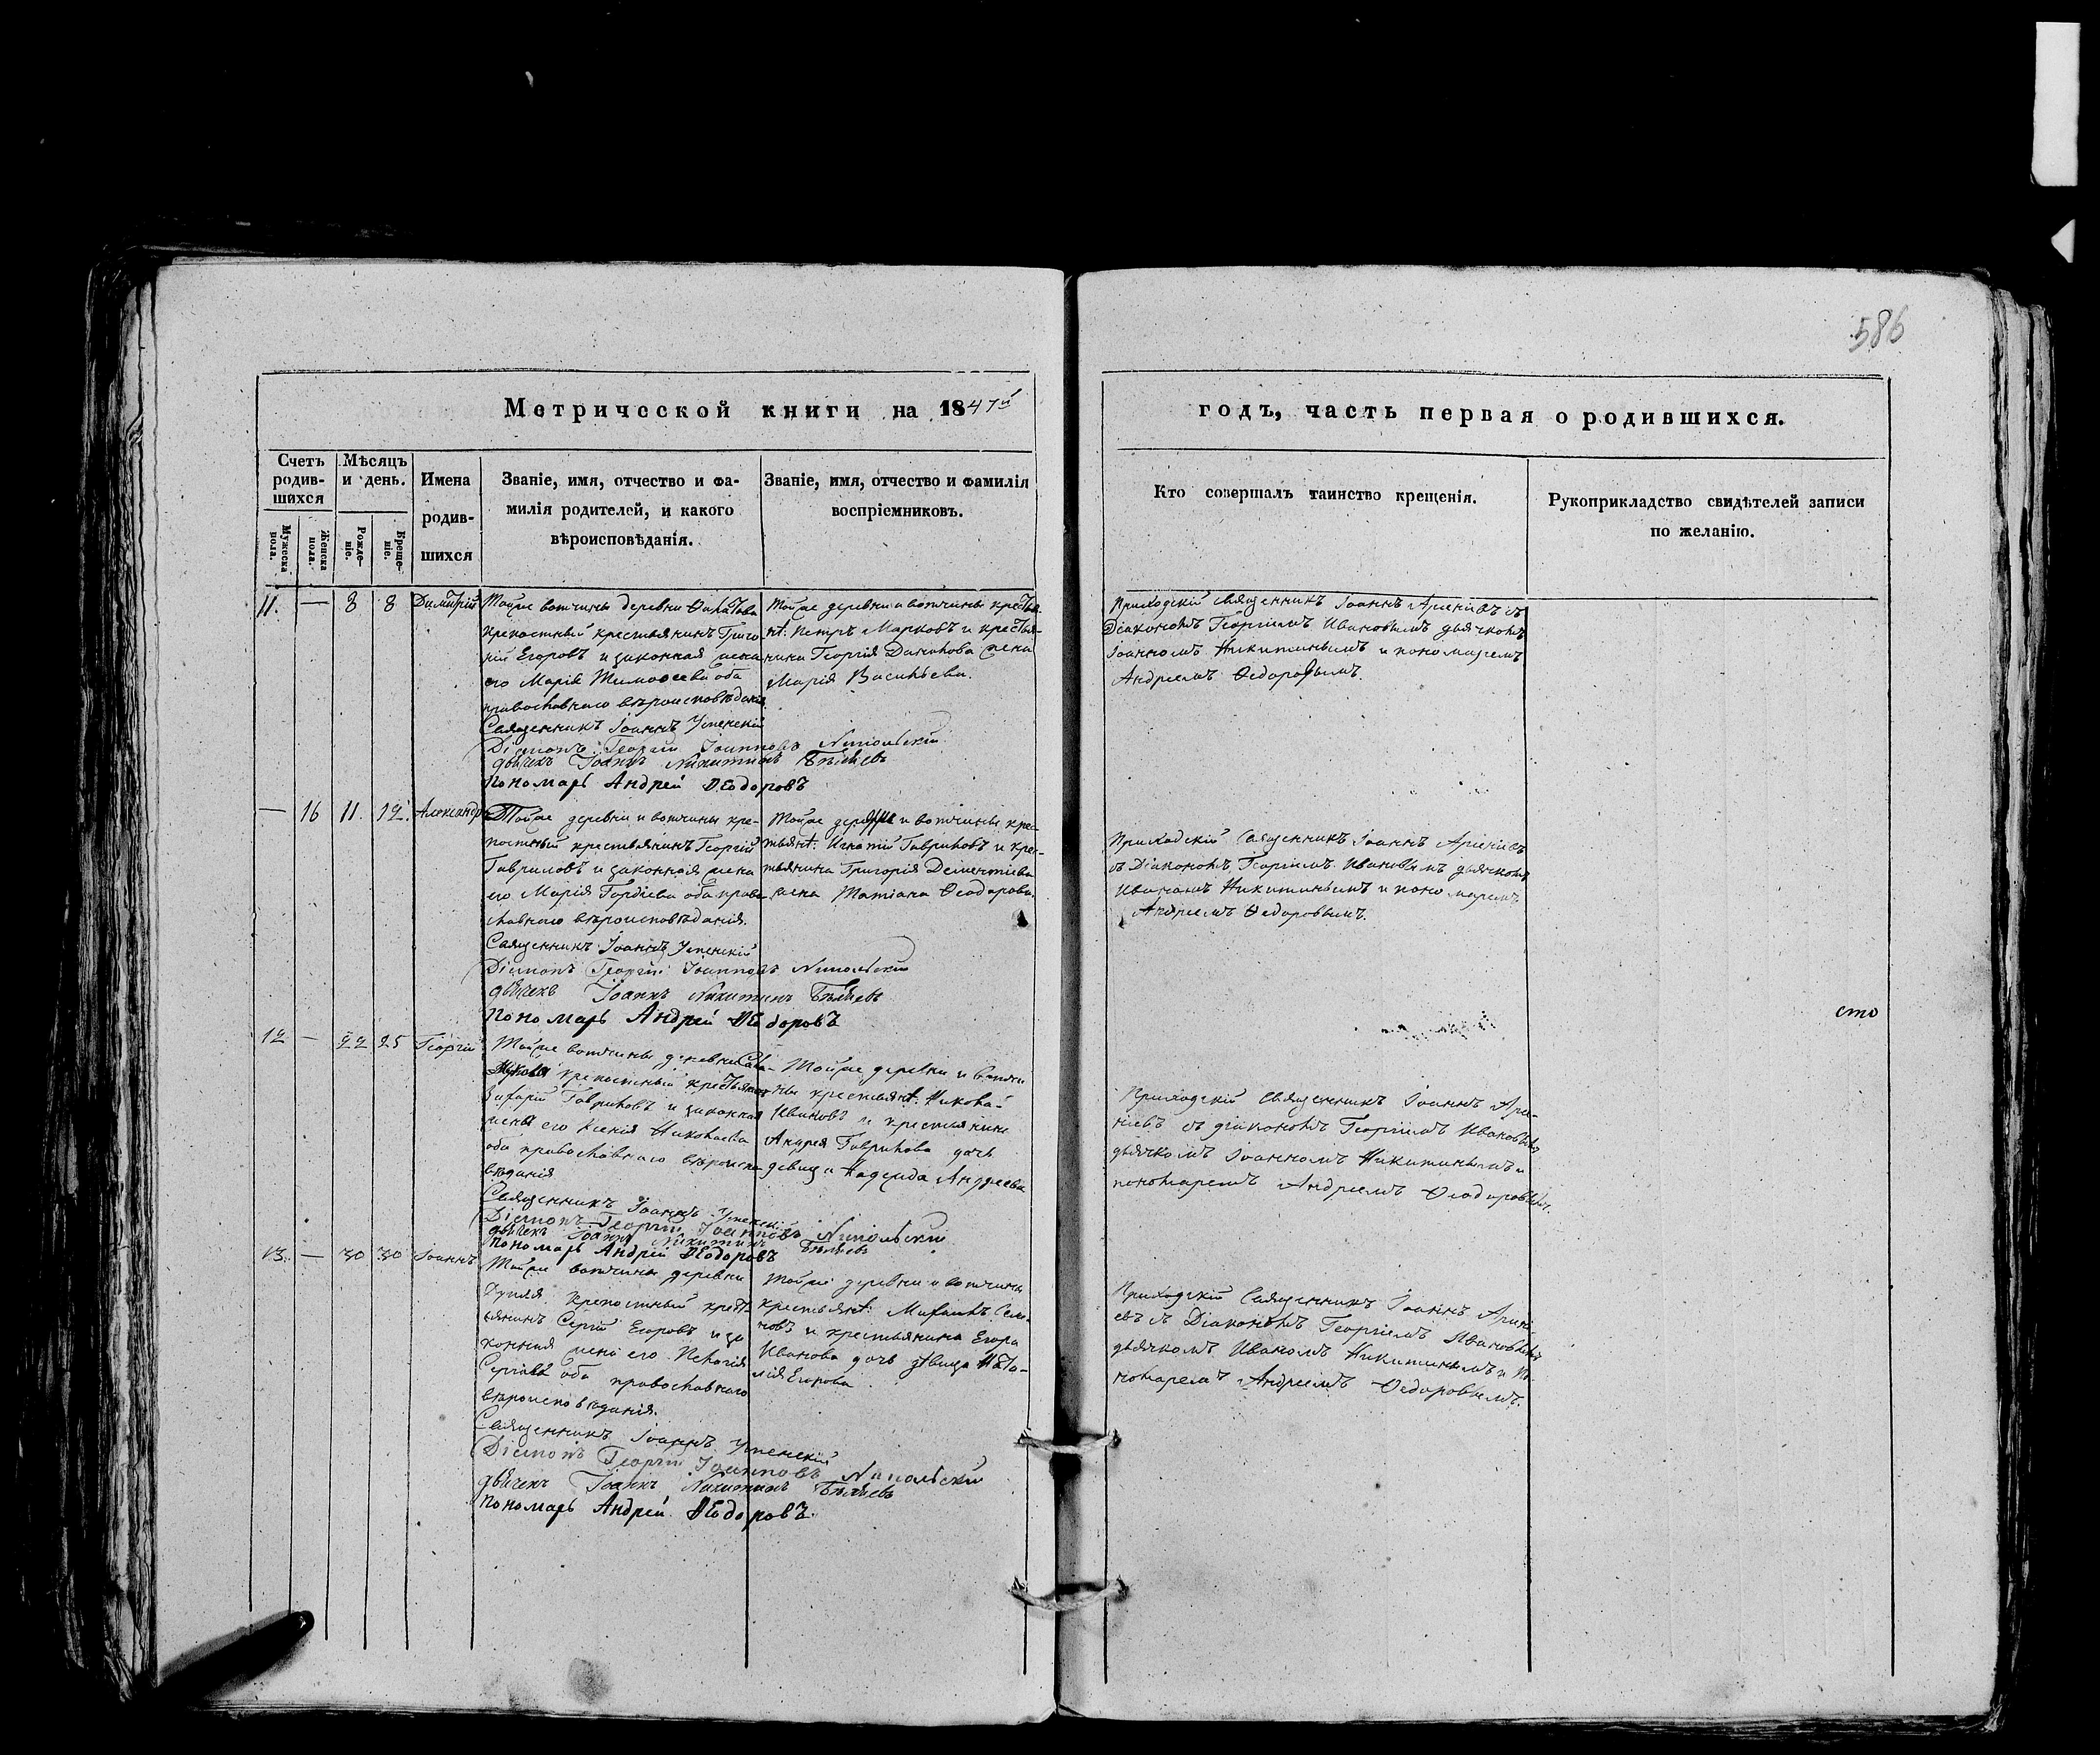 586
Метрической книги на 1847й
годъ, часть первая о родившихся.
Счетъ родив-шихся
Мѣсяцъ и день.
Имена родив-шихся
Званіе, имя, отчество и фа-
милія родителей, и какого
вѣроисповѣданія.
Званіе, имя, отчество и фамилія
воспріемниковъ.
Мужеска пола.
Женска пола.
Рожде-ніе.
Креще-ніе.
Кто совершалъ таинство крещенія.
Рукоприкладство свидѣтелей записи
по желанію.
11. — 8 8 Димитрій
Тойже вотчины деревни
крѣпостный крестьянинъ Григо
рій Егоровъ и законная жена
его Марія Тимофеева оба
православнаго вѣроисповѣданія
Священникъ Іоаннъ Успенскій
Діаконъ Георгій Іоанновъ Никольскій
дьячекъ Іоаннъ Никитинъ Бѣляевъ
Пономарь Андрей Ѳеодоровъ
Тойже деревни и вотчины крестья-
нъ: Петръ Марковъ и крестья-
нина Георгія жена
Марія Васильева.
Приходскій священникъ Іоаннъ съ
Діакономъ Георгіемъ Ивановымъ дьячкомъ
Іоанномъ Никитинымъ и пономаремъ
Андреемъ Ѳедоровымъ.
— 16 11. 12. Александра
Тойже деревни и вотчины крѣ-
постный крестьянинъ Георгій
Гавриловъ и законная жена
его Марія Гордіева оба право-
славнаго вѣроисповѣданія.
Священникъ Іоаннъ Успенскій
Діаконъ Георгій Іоанновъ Никольскій
дьячекъ Іоаннъ Никитинъ Бѣляевъ
Пономарь Андрей Ѳеодоровъ
Тойже деревни и вотчины крес-
тьянъ: Игнатій Гавриловъ и крес-
тьянина Григорія Дементіева
жена Татіана Ѳеодорова.
Приходскій Священникъ Іоаннъ
съ Діакономъ Георгіемъ Ивановымъ дьячкомъ
Иваномъ Никитинымъ и пономаремъ
Андреемъ Ѳедоровымъ.
сто
12 — 22 25 Георгій
Тойже вотчины деревни
крѣпостный крестьянинъ
Захарій Гавриловъ и законная
жена его Ксенія Николаева
оба православнаго вѣроиспо-
вѣданія
Священникъ Іоаннъ Успенскій
Діаконъ Георгій Іоанновъ Никольскій
дьячекъ Іоаннъ Никитинъ Бѣляевъ
Пономарь Андрей Ѳеодоровъ
Тойже деревни и вотчи
ны крестьянъ: Никола-
Ивановъ и крестьянина
Андрея Гаврилова дочь
девица Надежда Андреева
Приходскій Священникъ Іоаннъ
съ діакономъ Георгіемъ Ивановымъ
дьячкомъ Іоанномъ Никитинымъ и
пономаремъ Андреемъ Ѳеодоровымъ.
13. — 30 30 Іоаннъ
Тойже вотчины деревни
крѣпостный крест-
ьянинъ Сергій Егоровъ и за
конная жена его Пелагія
Сергіева оба православнаго
вѣроисповѣданія.
Священникъ Іоаннъ Успенскій
Діаконъ Георгій Іоанновъ Никольскій
дьячекъ Іоаннъ Никитинъ Бѣляевъ
Пономарь Андрей Ѳеодоровъ.
Тойже деревни и вотчины
крестьянъ: Михаилъ Семе-
новъ и крестьянина Егора
Иванова дочь дѣвица Ната-
лія Егорова
Приходскій Священникъ Іоаннъ
съ Діакономъ Георгіемъ Ивановымъ
дьячкомъ Иваномъ Никитинымъ и по
номаремъ Андреемъ Ѳедоровымъ.